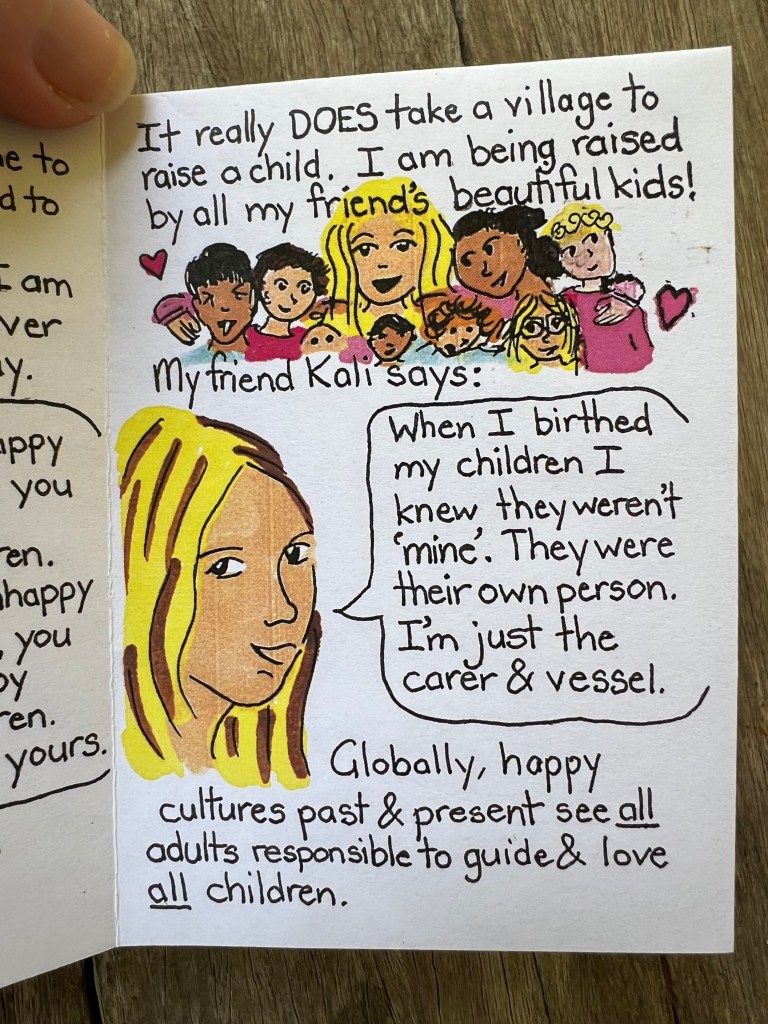 e to
d to
I am
ver
y.
appy
you
ren.
nhappy
, you
py
ren.
yours.
It really DOES take a village to
raise a child. I am being raised
by all my friend's beautiful kids!
My friend Kali says:
When I birthed
my children I
knew they weren't
'mine'. They were
their own person.
I'm just the
carer & vessel.
Globally, happy
cultures past & present see all
adults responsible to guide & love
all children.